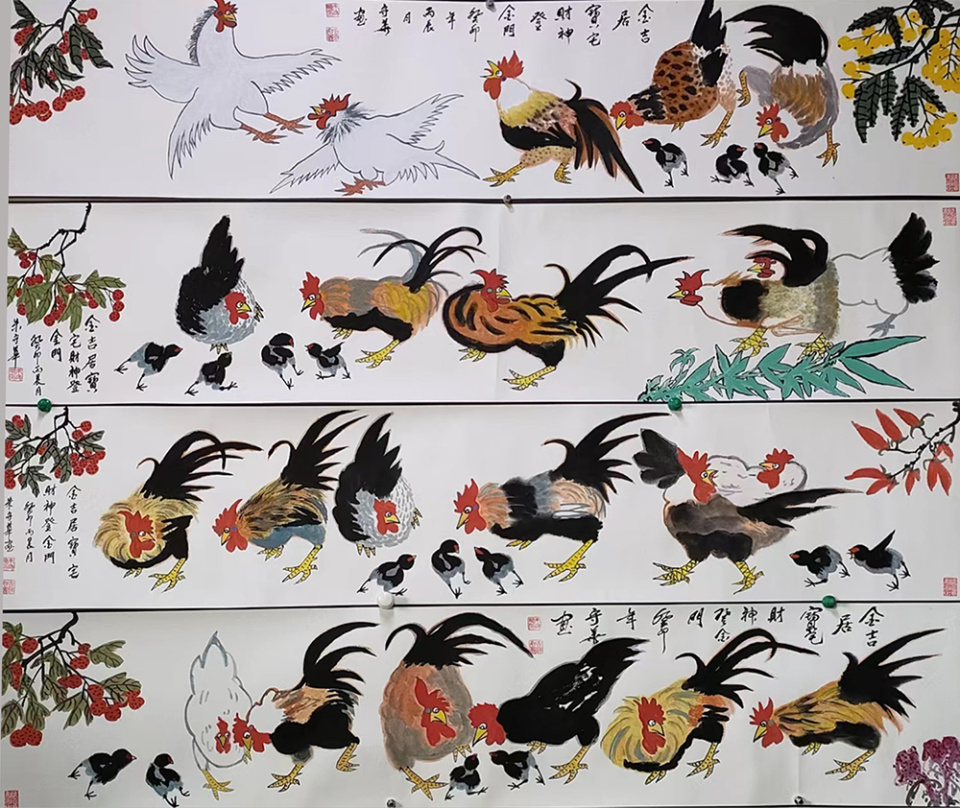 金吉
居
寶宅
財神
登
金門
癸卯
年
丙辰
月
守華
画
金吉居寶
宅財神登
金門
癸卯丙辰月
朱守華
金吉居寶宅
財神登金門
癸卯丙辰月
朱守華画
金吉
居
寶宅
財
神
登金
門
癸卯
年
守華
画